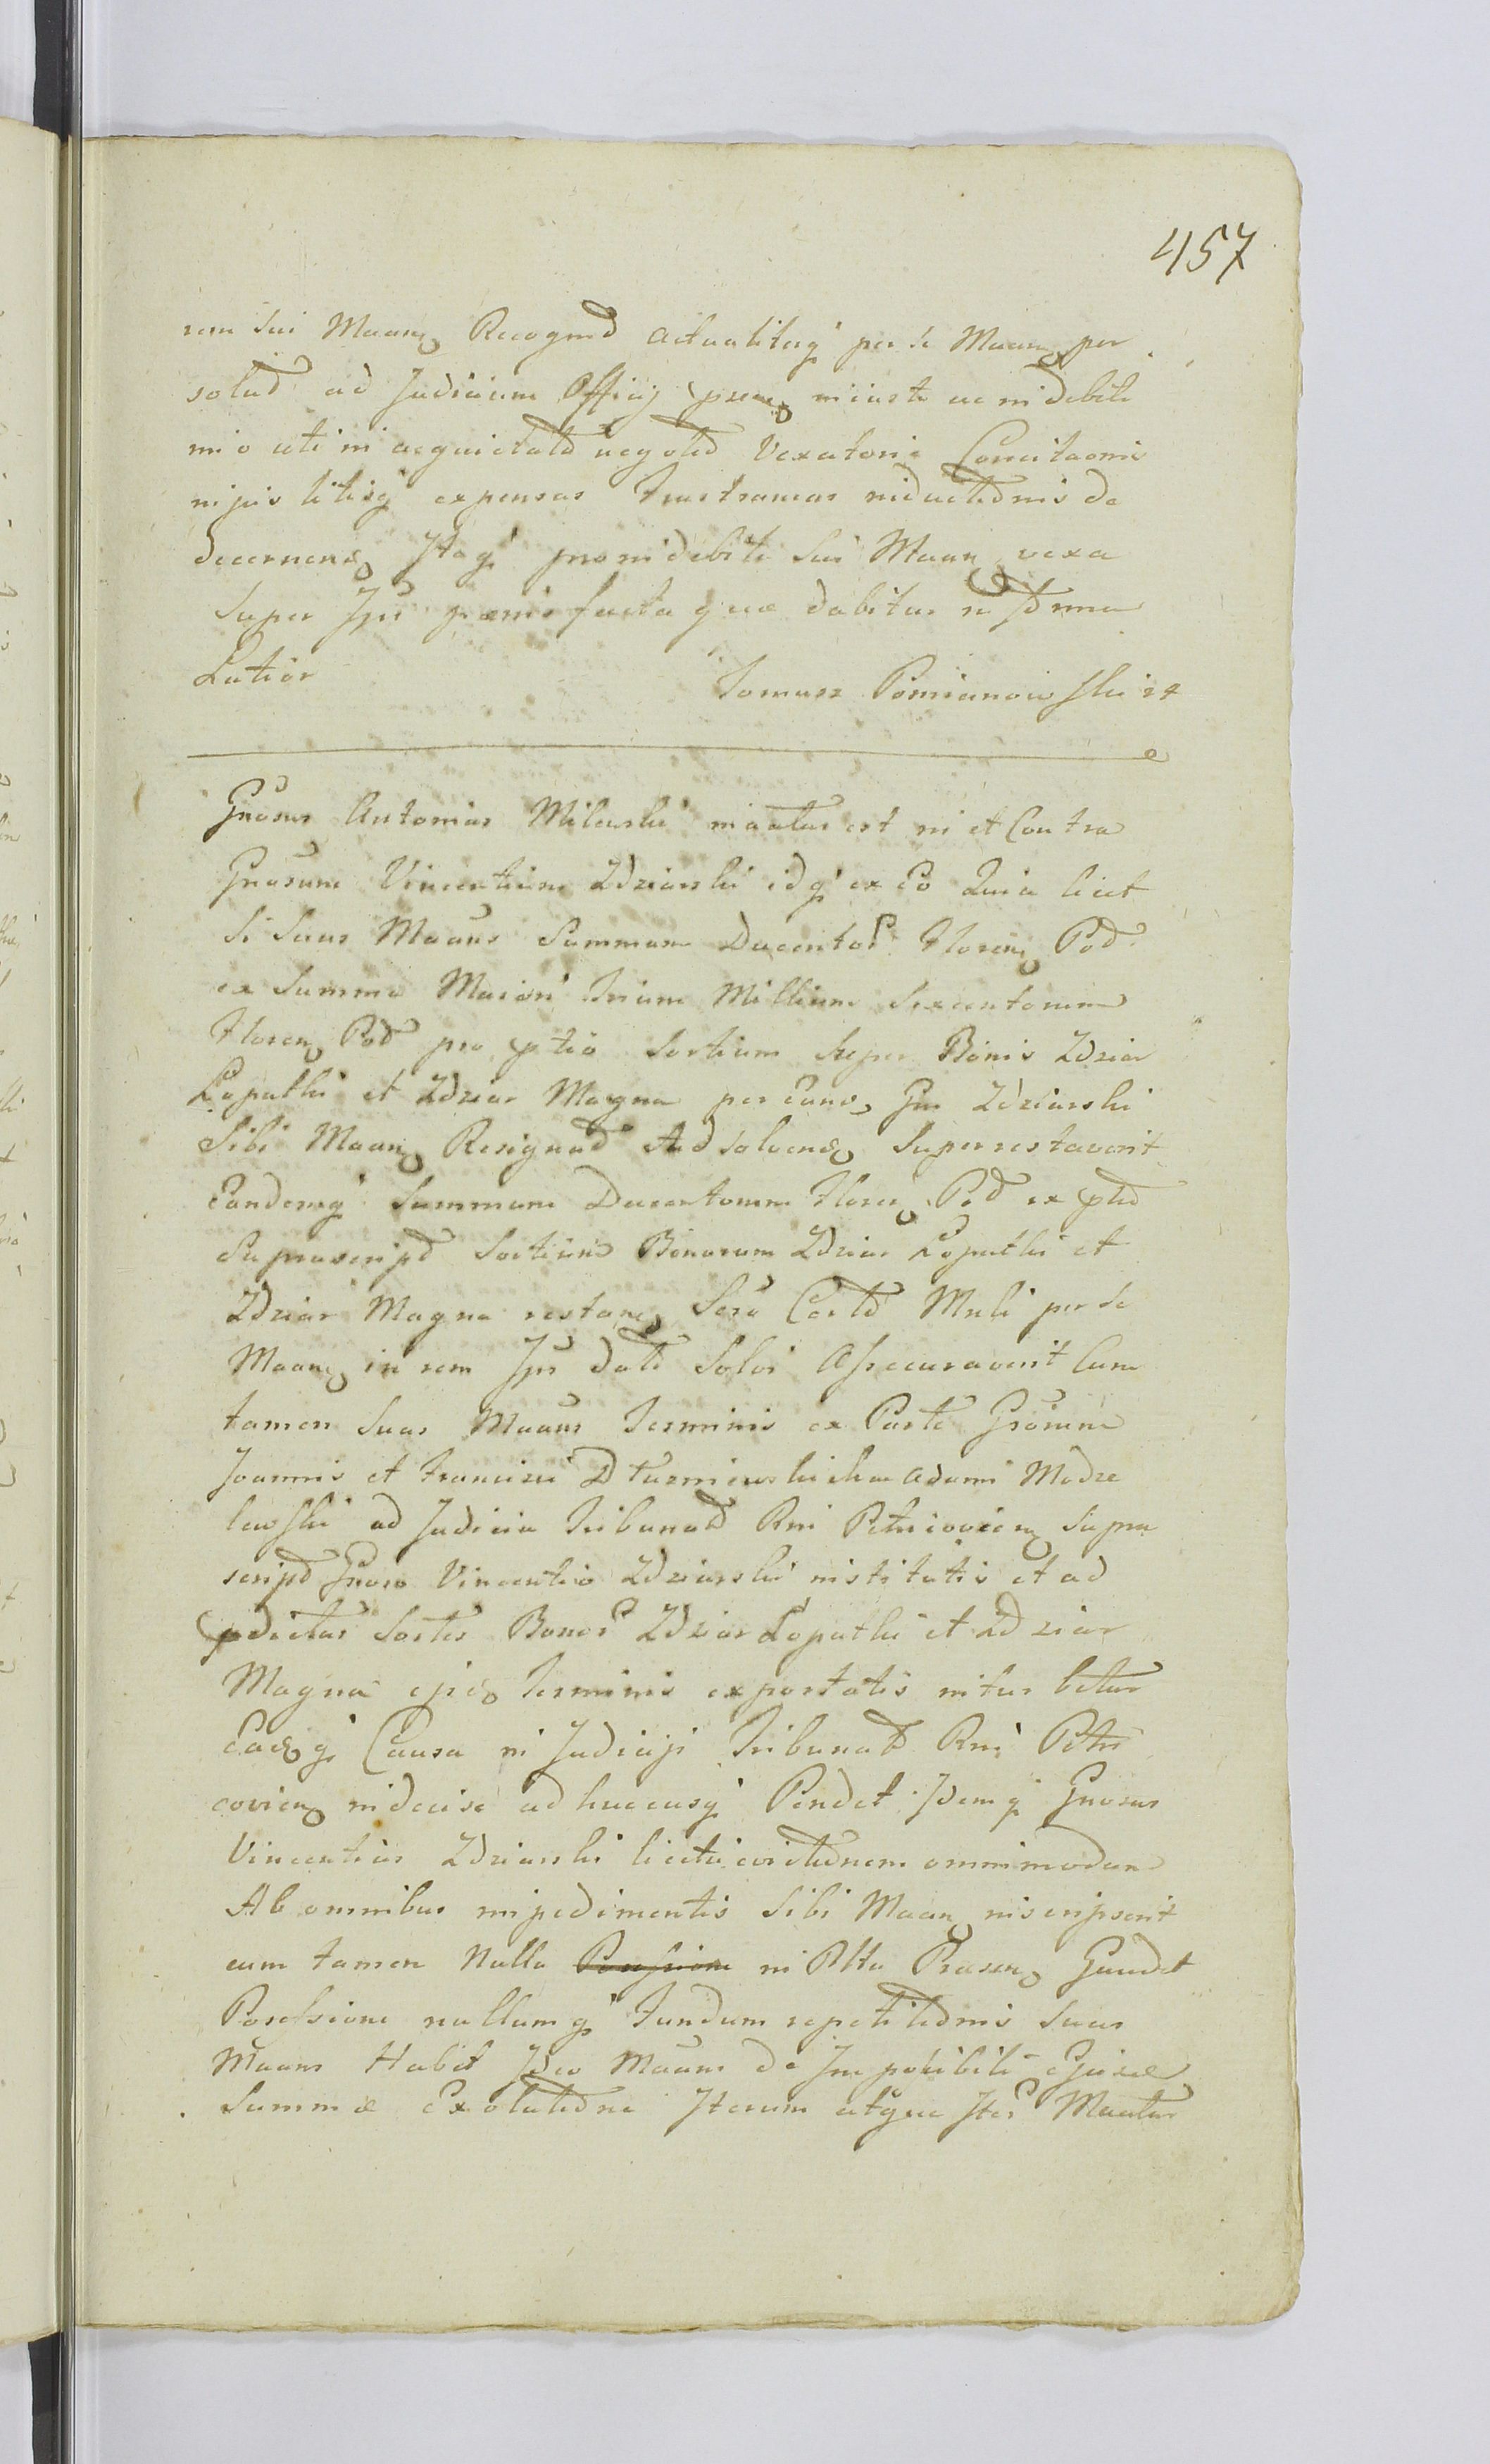 457
rem sui Maanq Recognd actualiterq per se Maanq per
solud ad Judicium Officij pseng iniuste ac indebite
imo uti in aequietatd negotd Vexatorie Concitaonis
in jus litisq expensas frustraneas inductdnis de
decernend Itaq pro indebite sui Maanq vexa
super Ipsi paenis facta quae dabitur in tdrmo
Latior
Tomasz Pomianowski
Gnosus Antonius Milewski maatus est in et Contra
Gnosum Vincentium Zdziarski idq ex Eo Quia licet
si suus Maans Summam Ducentor Florenq Pod
ex Summa Maiori Trium Millium Sexcentorum
Florenq Pod pro ptio Sortium super Bonis Zdziar
Łopatki et Zdziar Magna per eundq Gnr Zdziarski
Sibi Maanq Resignad Ad solvend Superrestaverit
Eandemq Summam Ducentorum Florenq Pod ex ptd
Suprascripd Sortium Bonorum Zdziar Łopatki et
Zdziar Magna restanq Sero Certd Muli per se
Maanq in rem Ipsi datd Solvi Assecuraverit Cum
tamen suus Maans Terminis ex Parte Grosum
Joannis et Francisci Dturmiewski Adami Modze
lewski ad Judicia Tribunald Rni Petricovienq supra
scripd Gnoso Vincentio Zdziarski institutis et ad
pdictas Sortes Bonor Zdziar Łopatki et Zdziar
Magna ejsd Terminis exportatis inturbetur
Eadq Causa in Judicijs Tribunald Rni Petri
covienq indecise ad hucusq Pendet Idemq Gnosus
Vincentius Zdziarski licet evictdnem omnimodam
Ab omnibus impedimentis Sibi Maanq inscripserit
cum tamen Nulla in Ptta Prasenq Gaudet
Possessione nullumq Fundum repetitdnis suus
Maans Habet Ideo Maans de Impossibili Ejusce
Summae Exolutdne Iterum atque Iter Maatur